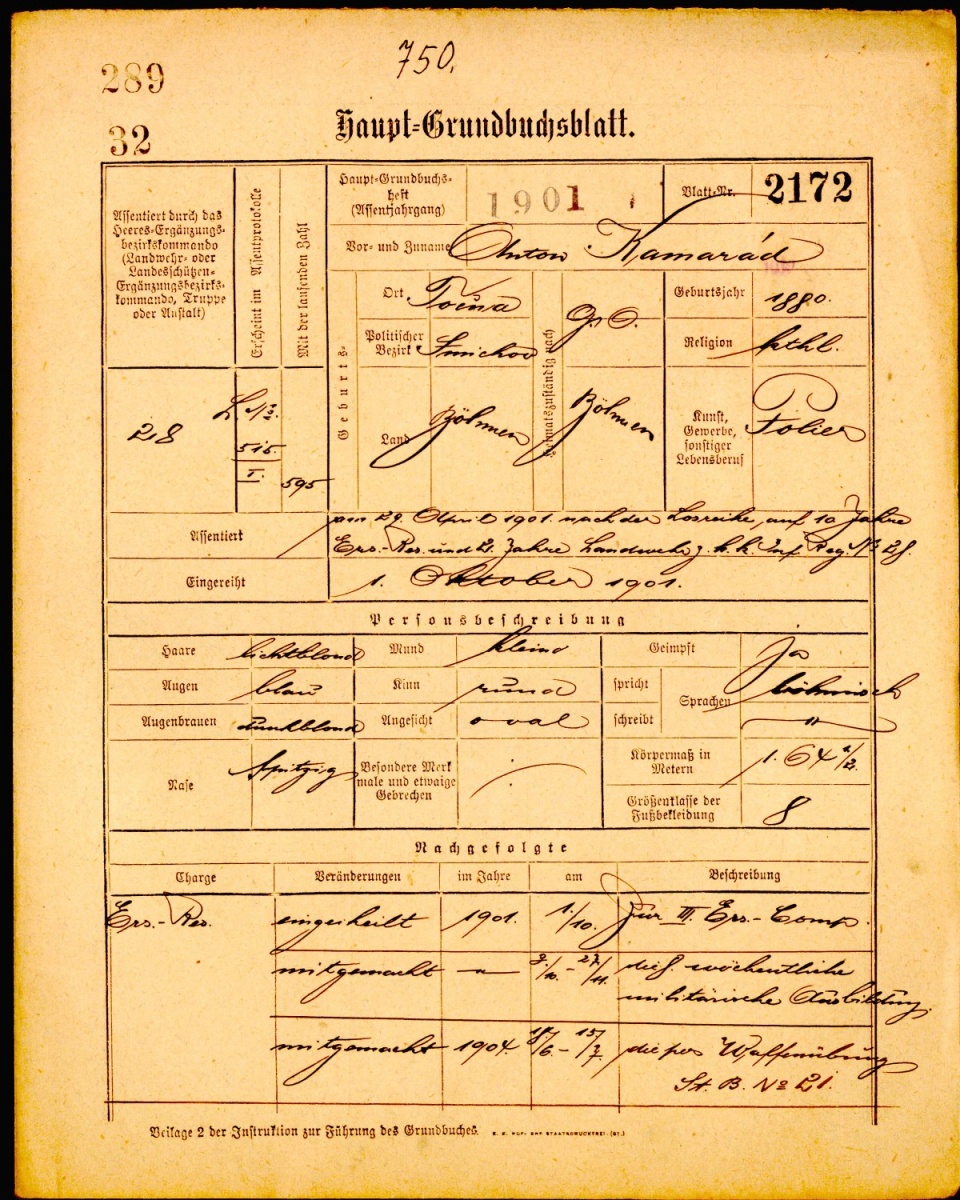 750.
289
32
Haupt-Grundbuchsblatt.
Assentiert durch das
Heeres-Ergänzungs-
bezirkskommando
(Landwehr- oder
Landesschützen-
Ergänzungsbezirks-
kommando, Truppe
oder Anstalt)
Erscheint im Assentprotokolle
Mit der laufenden Zahl
Haupt-Grundbuchs-
heft
(Assentjahrgang)
1901
Blatt-Nr.
2172
Vor- und Zuname
Anton Kamarád
Geburts-
Ort
Točna
Politischer
Bezirk
Smichov
Land
Böhmen
Heimatszuständig nach
Böhmen
Geburtsjahr
1880.
Religion
kthl.
Kunst,
Gewerbe,
sonstiger
Lebensberuf
Polier
28
515.
I.
595
Assentiert
am 29. April 1901. nach der Losreihe, auf 10 Jahre
Ers.-Res. und 2. Jahre Landwehr z. k. k. Inf. Reg. № 28.
Eingereiht
1. Oktober 1901.
Personsbeschreibung
Haare
lichtblond
Mund
klein
Geimpft
ja
Augen
blau
Kinn
rund
spricht
Sprachen
böhmisch
Augenbrauen
dunkblond
Angesicht
oval
schreibt
"
Nase
spitzig
Besondere Merk
male und etwaige
Gebrechen
Körpermaß in
Metern
1.64 1/2.
Größenklasse der
Fußbekleidung
8
Nachgefolgte
Charge
Veränderungen
im Jahre
am
Beschreibung
Ers.-Res.
eingetheilt
1901.
1./10.
zur III. Ers.-Comp.
mitgemacht
"
wöchentliche
militärische Ausbildung.
mitgemacht
1904.
18/6. - 15/7.
Waffenübung
St. B. № 21.
Beilage 2 der Instruktion zur Führung des Grundbuches.
K. K. HOF- UND STAATSDRUCKEREI. (ST.)